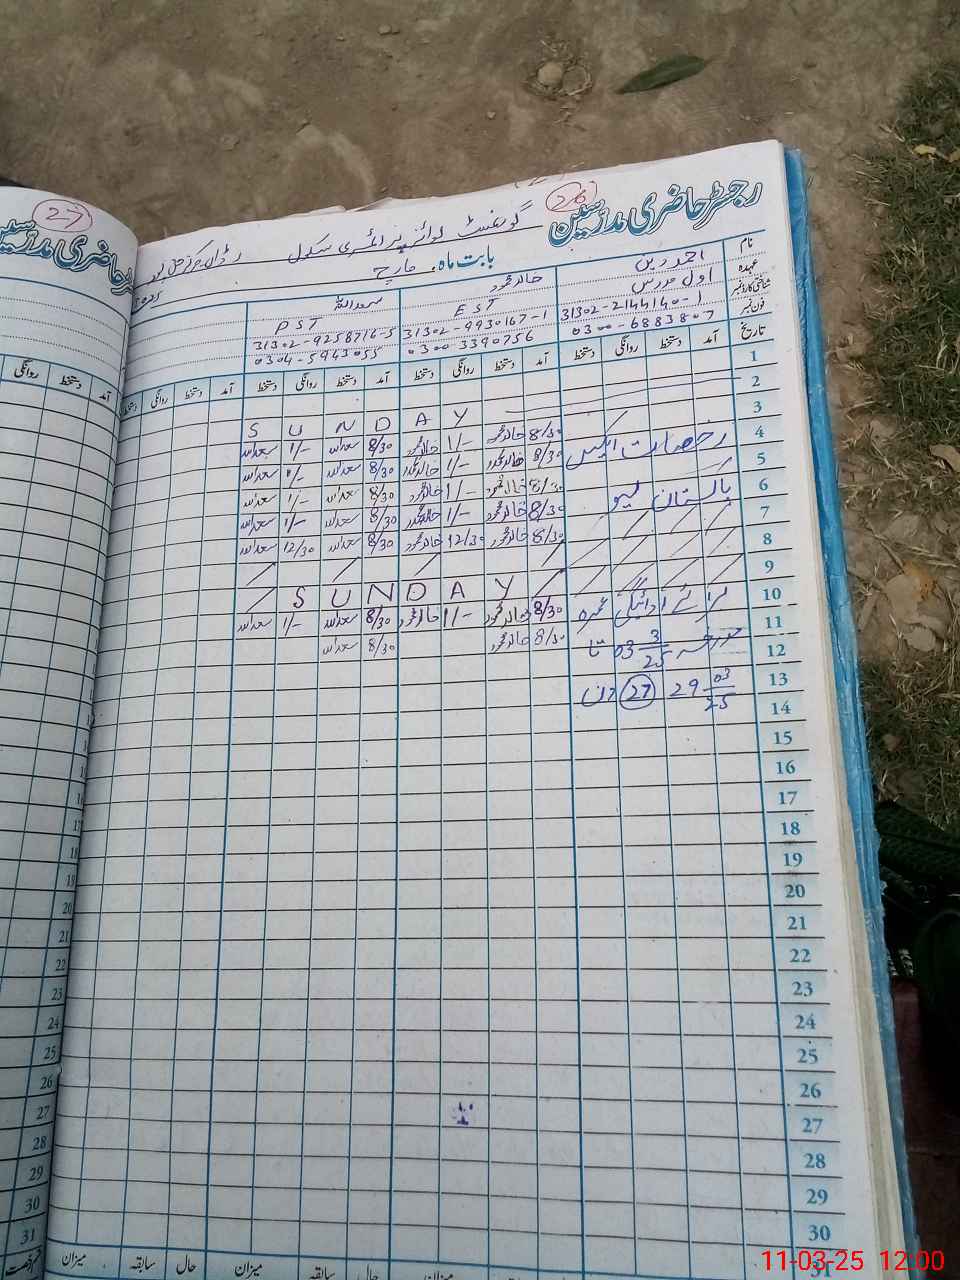 2-7
رجسٹر حاضری مدرسین
26
گورنمنٹ بوائز پرائمری سکول
بابت ماہ مارچ
2025
نام
احمد دین
خالد محمود
سعد اللہ
عہدہ
اول مدرس
EST
PST
شناختی کارڈ نمبر
31302-2144140-1
31302-9930167-1
31302-9258716-5
فون نمبر
0300-6883807
0300 3390756
0304-5943055
تاریخ آمد دستخط روانگی دستخط آمد دستخط روانگی دستخط آمد دستخط روانگی دستخط آمد دستخط روانگی دستخط
1
2
SUNDAY
3 8/30 خالد محمود 1/- خالد محمود 8/30 سعد اللہ 1/- سعد اللہ
4 رخصت ایکس 8/30 خالد محمود 1/- خالد محمود 8/30 سعد اللہ 1/- سعد اللہ
5 8/30 خالد محمود 1/- خالد محمود 8/30 سعد اللہ 1/- سعد اللہ
6 پاکستان لیو 8/30 خالد محمود 1/- خالد محمود 8/30 سعد اللہ 1/- سعد اللہ
7 8/30 خالد محمود 12/30 خالد محمود 8/30 سعد اللہ 12/30 سعد اللہ
8
9 SUNDAY
10 برائے ادائیگی عمرہ 8/30 خالد محمود 1/- خالد محمود 8/30 سعد اللہ 1/- سعد اللہ
11 مورخہ 03 3/25 تا 8/30 خالد محمود 8/30 سعد اللہ
12
13 29 03/25 27 دن
14
15
16
17
18
19
20
21
22
23
24
25
26
27
28
29
30
31
میزان سابقہ حال میزان سابقہ حال میزان
11-03-25 12:00